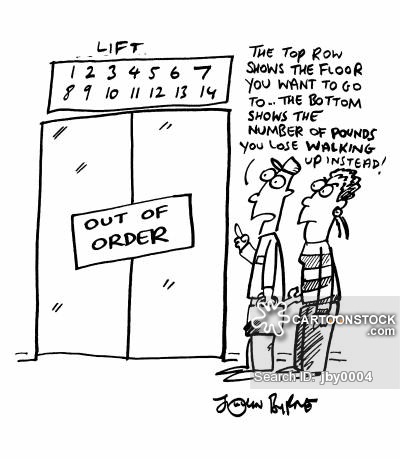 LIFT
1 2 3 4 5 6 7
8 9 10 11 12 13 14
THE TOP ROW
SHOWS THE FLOOR
YOU WANT TO GO
TO... THE BOTTOM
SHOWS THE
NUMBER OF POUNDS
YOU LOSE WALKING
UP INSTEAD!
OUT OF
ORDER
CARTOONSTOCK
.com
Search ID: jby0004
JOHN BYRNE